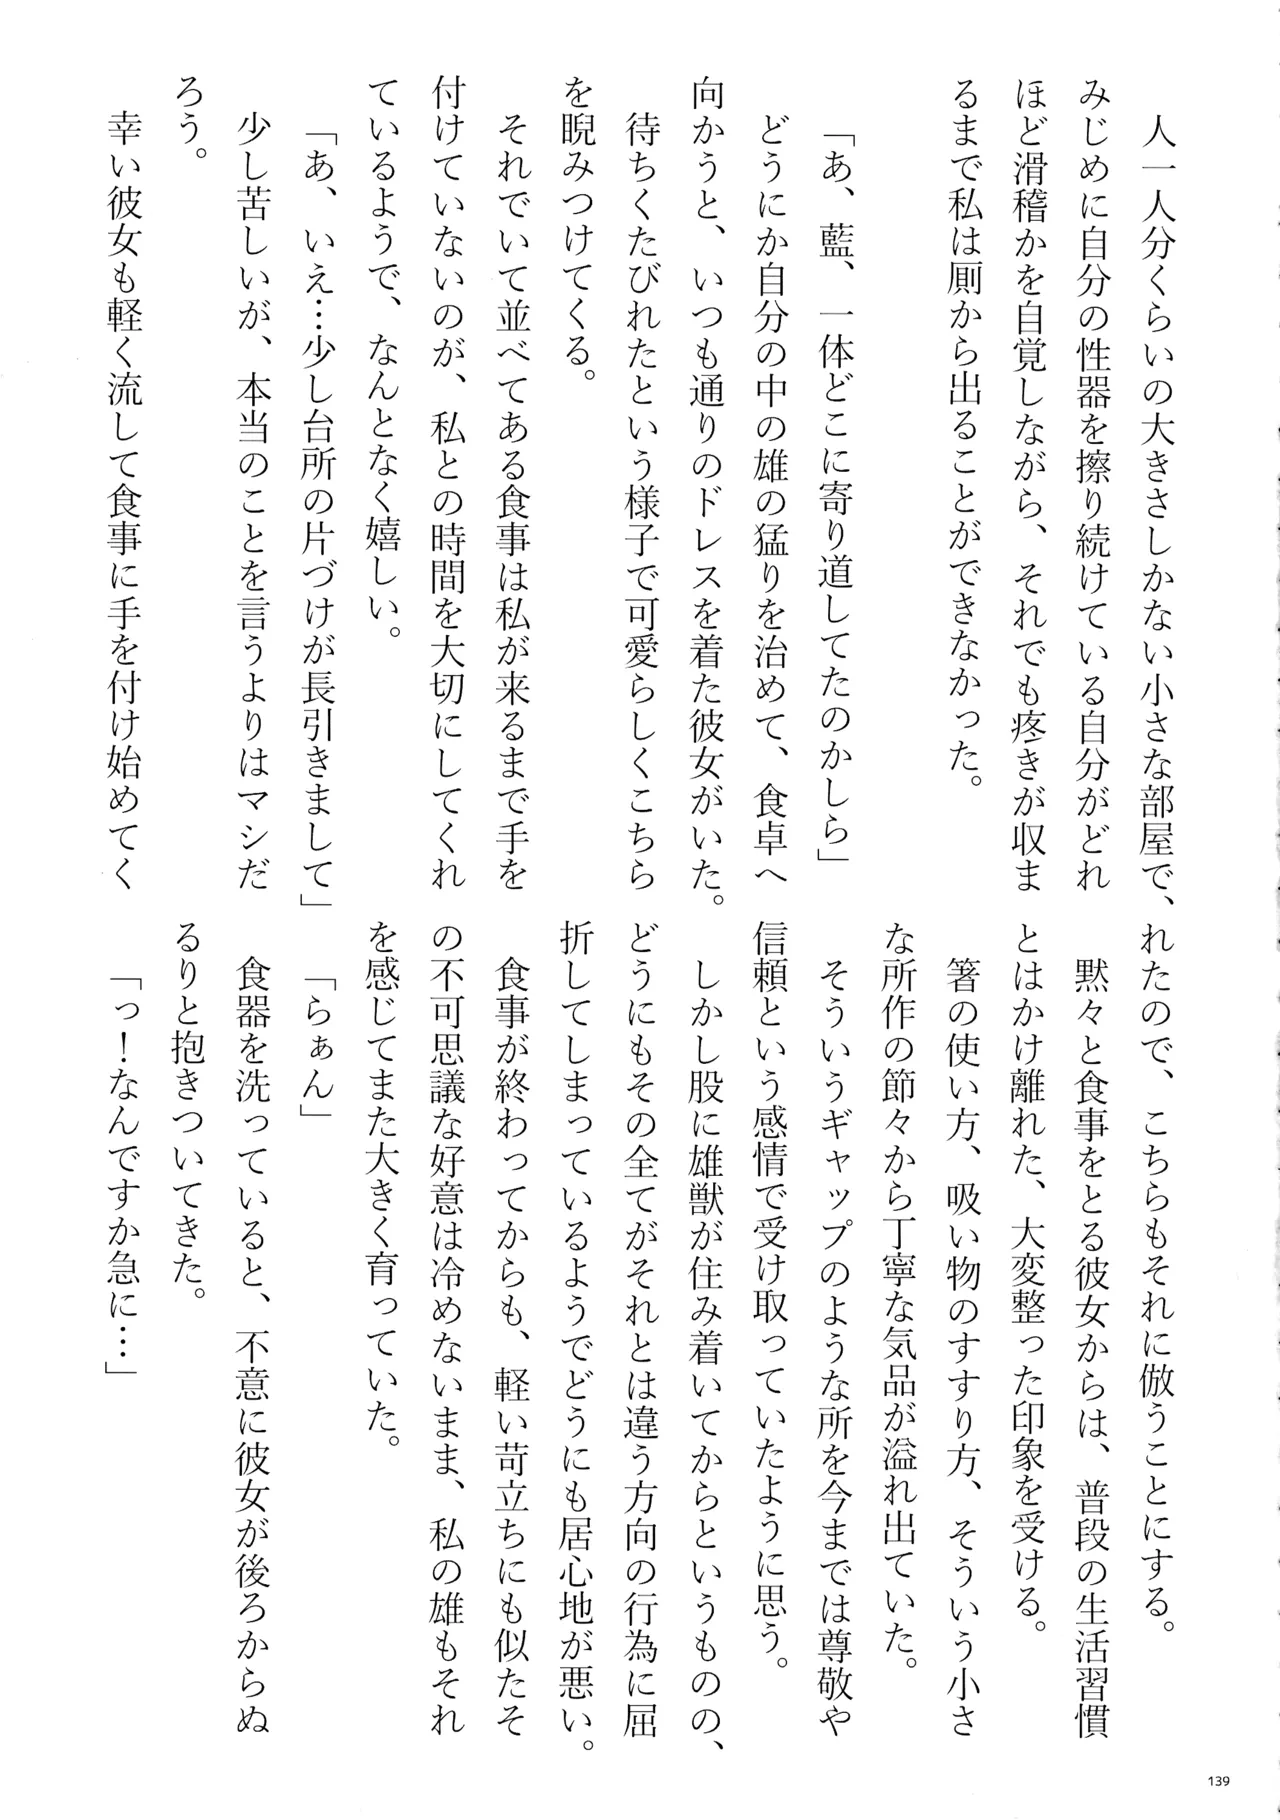 人一人分くらいの大きさしかない小さな部屋で、
みじめに自分の性器を擦り続けている自分がどれ
ほど滑稽かを自覚しながら、それでも疼きが収ま
るまで私は厠から出ることができなかった。
「あ、藍、一体どこに寄り道してたのかしら」
どうにか自分の中の雄の猛りを治めて、食卓へ
向かうと、いつも通りのドレスを着た彼女がいた。
待ちくたびれたという様子で可愛らしくこちら
を睨みつけてくる。
それでいて並べてある食事は私が来るまで手を
付けていないのが、私との時間を大切にしてくれ
ているようで、なんとなく嬉しい。
「あ、いえ…少し台所の片づけが長引きまして」
少し苦しいが、本当のことを言うよりはマシだ
ろう。
幸い彼女も軽く流して食事に手を付け始めてく
れたので、こちらもそれに倣うことにする。
黙々と食事をとる彼女からは、普段の生活習慣
とはかけ離れた、大変整った印象を受ける。
箸の使い方、吸い物のすすり方、そういう小さ
な所作の節々から丁寧な気品が溢れ出ていた。
そういうギャップのような所を今までは尊敬や
信頼という感情で受け取っていたように思う。
しかし股に雄獣が住み着いてからというものの、
どうにもその全てがそれとは違う方向の行為に屈
折してしまっているようでどうにも居心地が悪い。
食事が終わってからも、軽い苛立ちにも似たそ
の不可思議な好意は冷めないまま、私の雄もそれ
を感じてまた大きく育っていた。
「らぁん」
食器を洗っていると、不意に彼女が後ろからぬ
るりと抱きついてきた。
「っ！なんですか急に…」
139